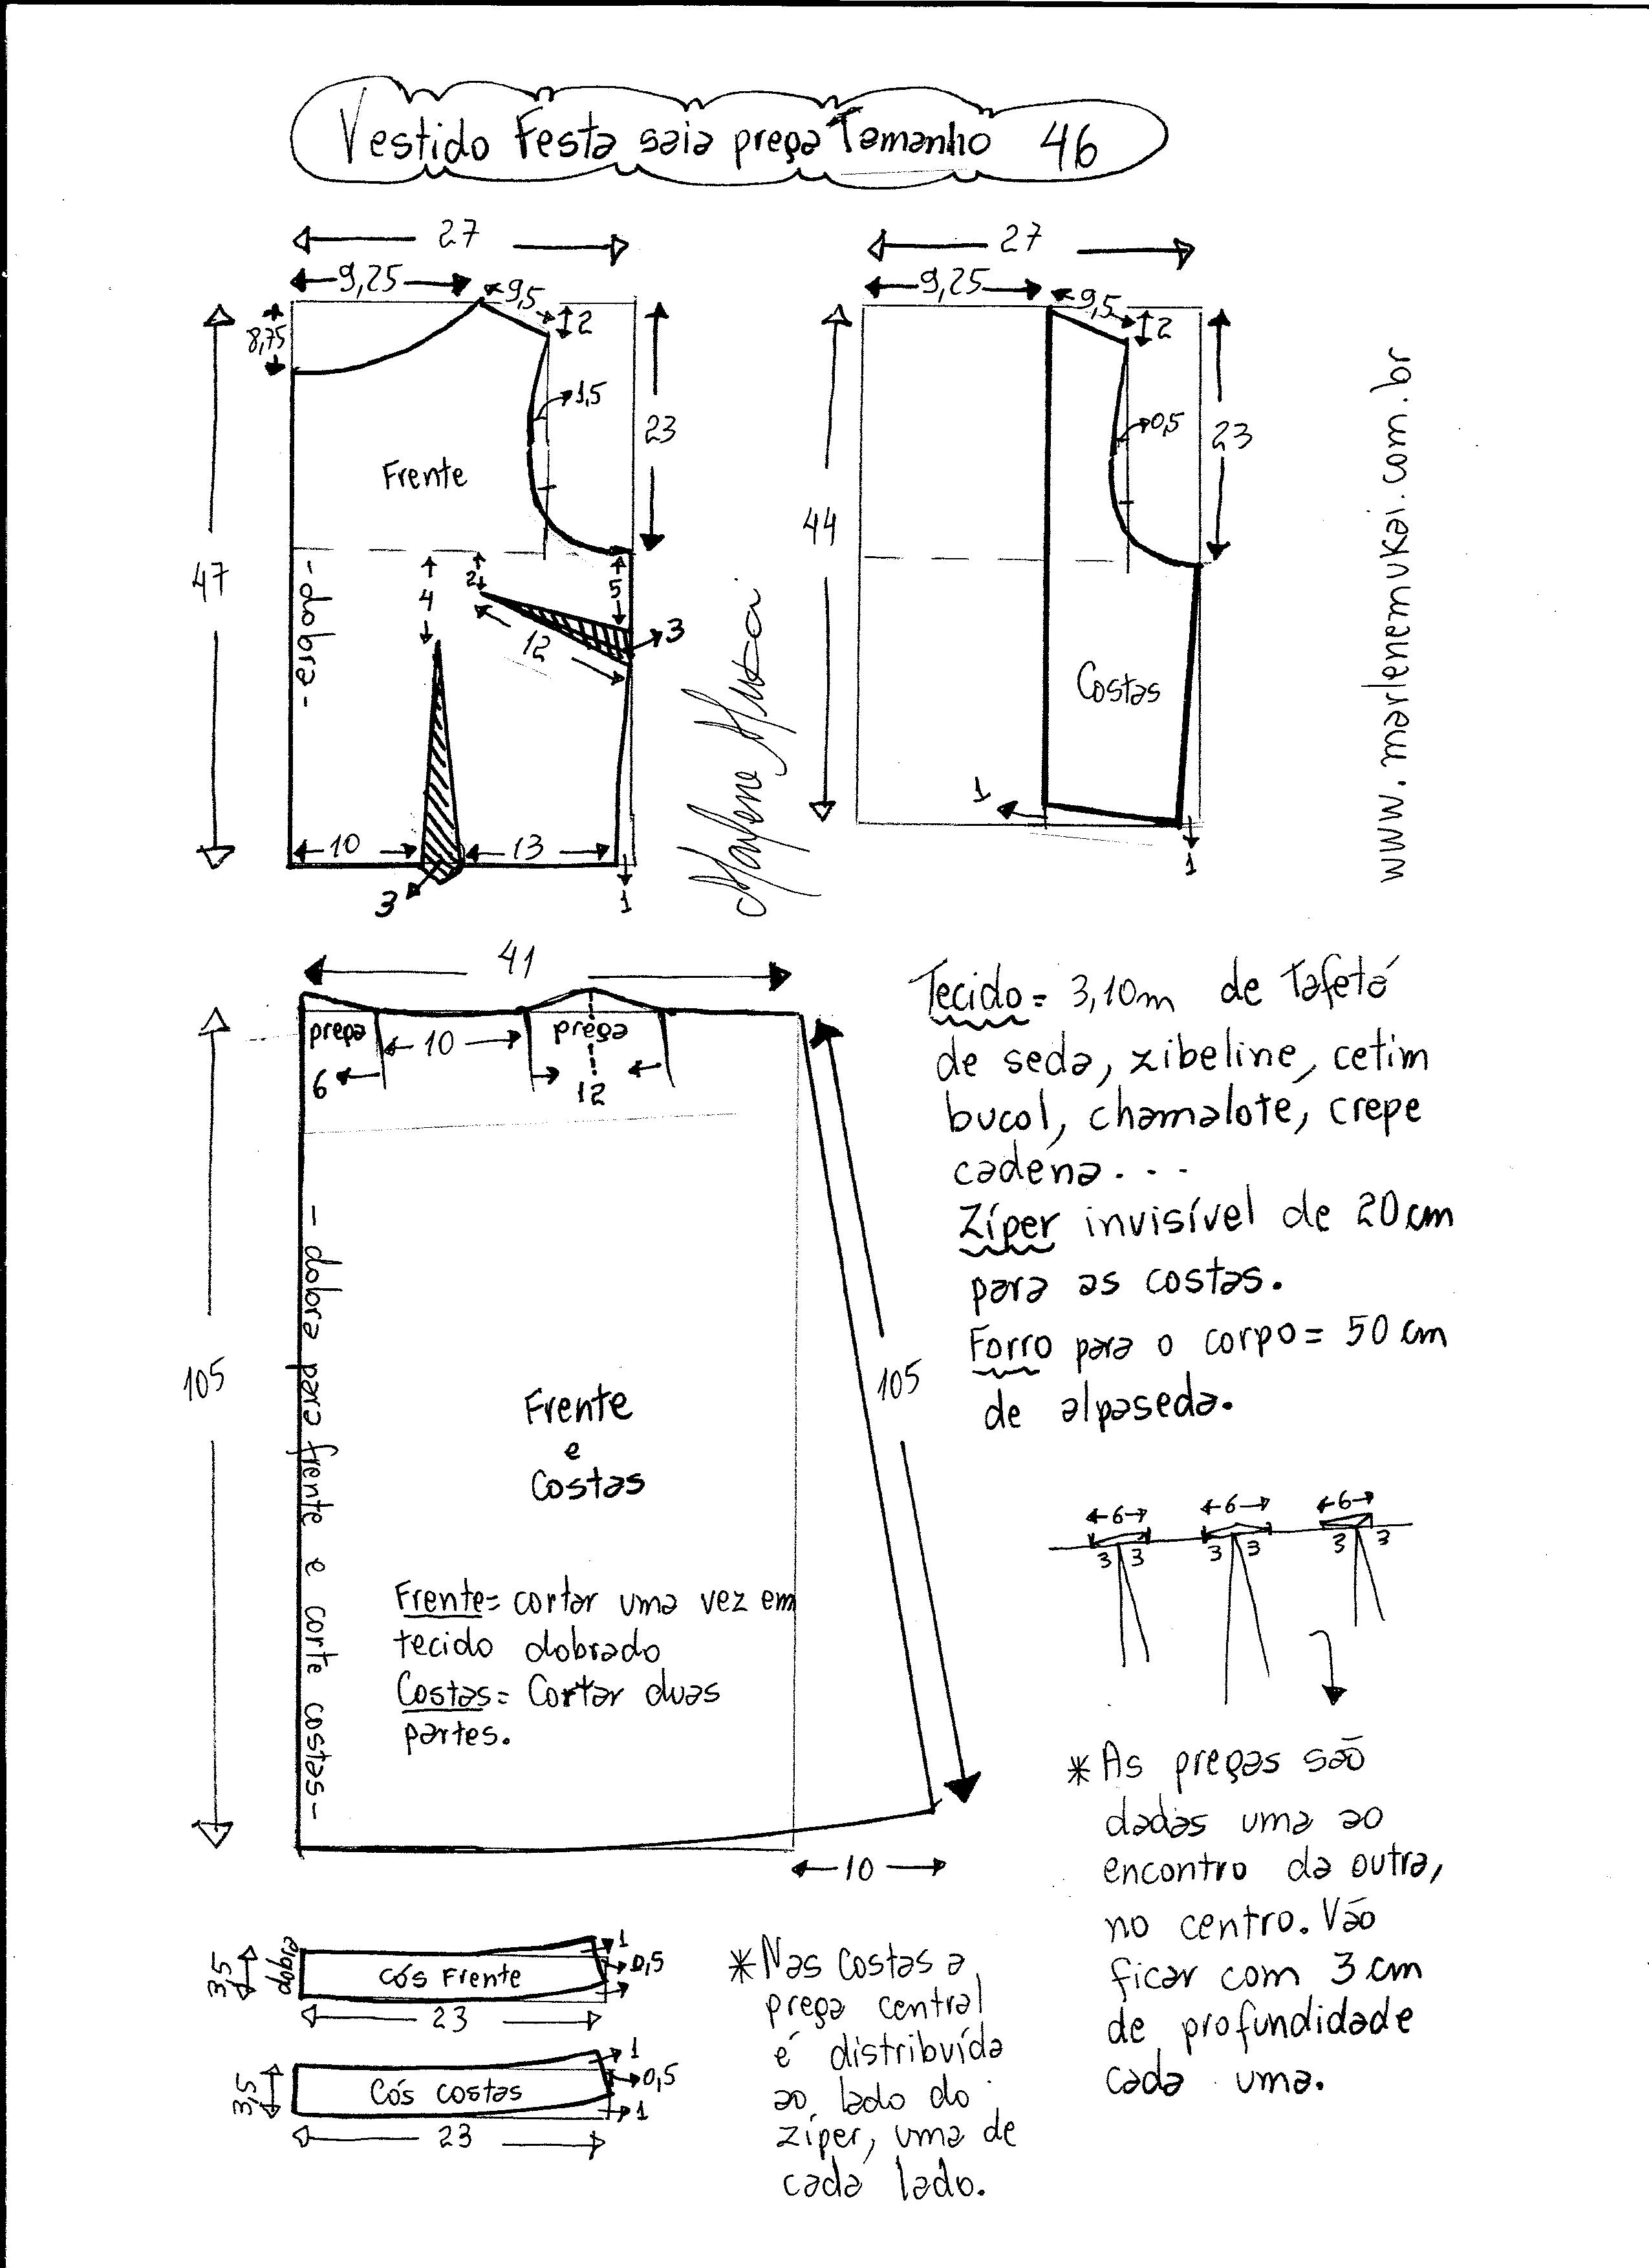 Vestido Festa saia prega Tamanho 46
27
9,25
9,5
2
8,75
1,5
23
Frente
47
- dobra -
4
2
5
12
3
10
13
3
1
Marlene Mukai
27
9,25
9,5
2
0,5
23
44
Costas
1
1
www.marlenemukai.com.br
41
prega
10
prega
6
12
105
105
- dobra para frente e corte costas -
Frente
e
Costas
Frente= cortar uma vez em
tecido dobrado
Costas= Cortar duas
partes.
10
Tecido= 3,10m de Tafetá
de seda, zibeline, cetim
bucol, chamalote, crepe
cadena...
Zíper invisível de 20cm
para as costas.
Forro para o corpo= 50 cm
de alpaseda.
6
6
6
3 3
3 3
3 3
*As pregas são
dadas uma ao
encontro da outra,
no centro. Vão
ficar com 3 cm
de profundidade
cada uma.
3,5
dobra
cós Frente
1
0,5
23
3,5
Cós costas
1
0,5
1
23
*Nas costas a
prega central
é distribuída
ao lado do
zíper, uma de
cada lado.